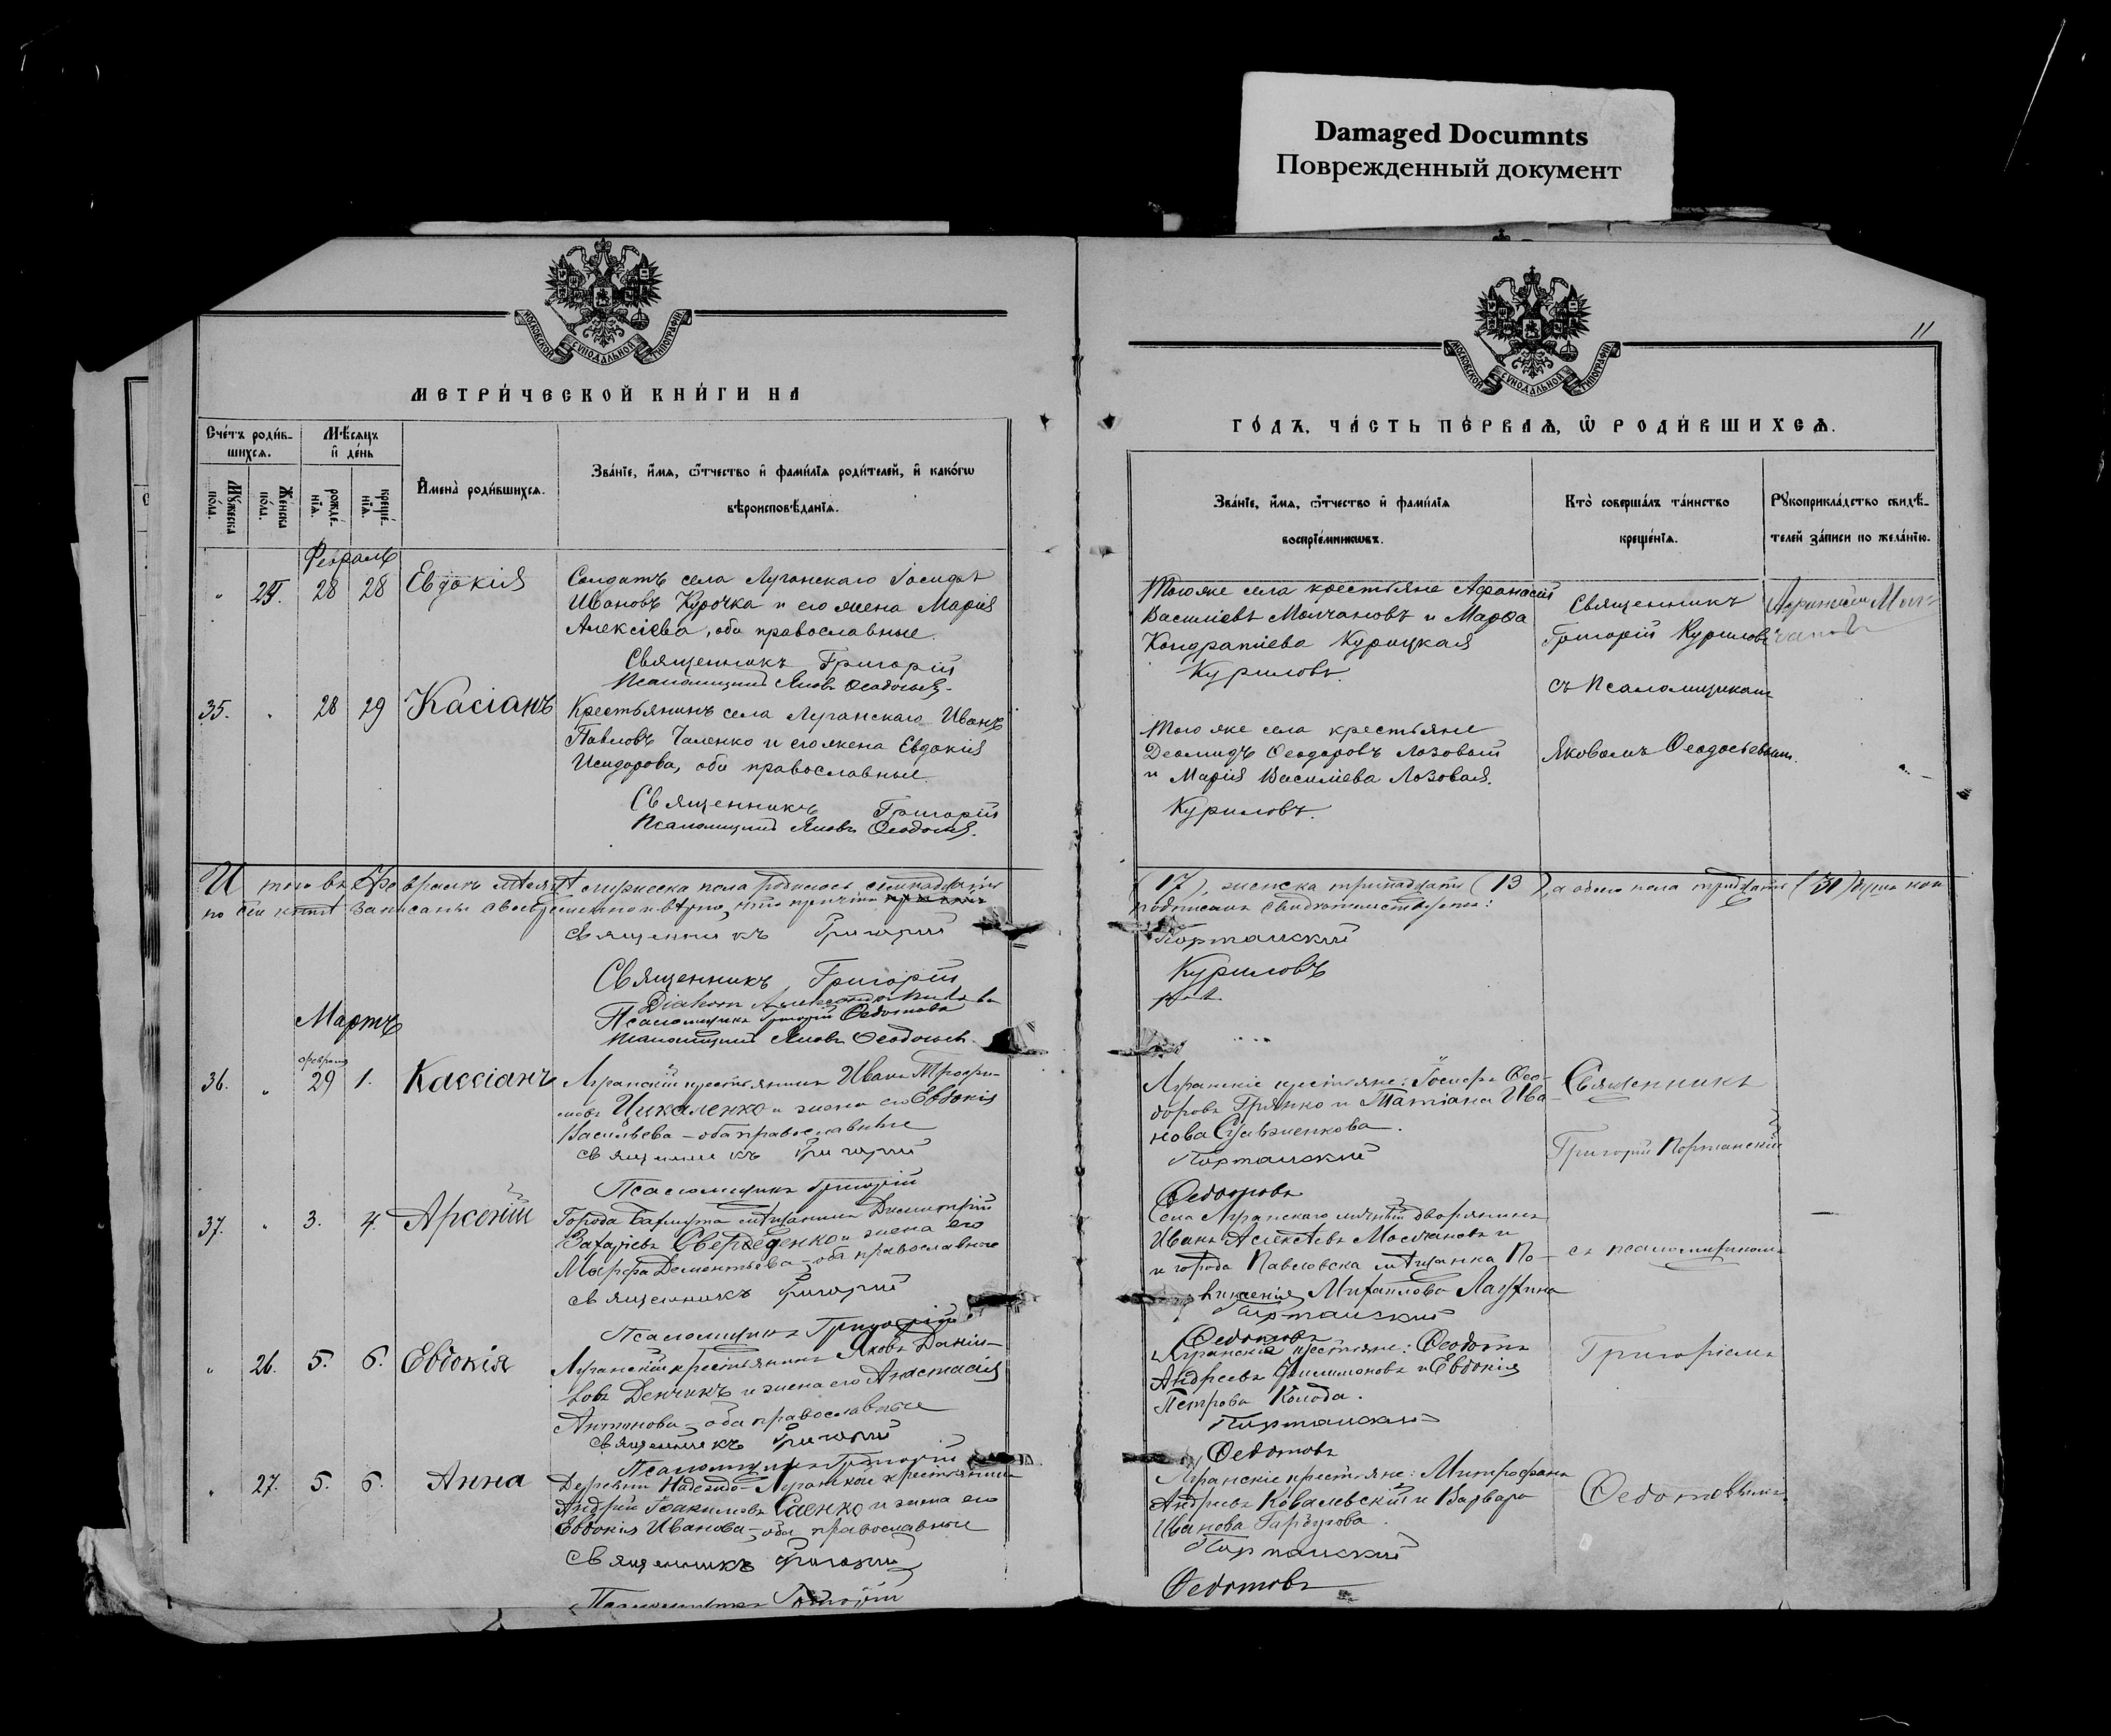 Damaged Documnts
Поврежденный документ
МОСКОВСКОЙ СѴНОДАЛЬНОЙ ТИПОГРАФІИ
МЕТРИ́ЧЕСКОЙ КНИ́ГИ НА
Сче́тъ роди́в-
шихсѧ.
Мѣ́сѧцъ
и҆ де́нь
Мꙋ́жеска по́ла.
Же́нска по́ла.
рожде́-
нїѧ.
креще́-
нїѧ.
И҆мена̀ роди́вшихсѧ.
Зва́нїе, и҆́мѧ, ѻ҆́тчество и҆ фами́лїѧ роди́телей, и҆ како́гѡ
вѣроисповѣ́данїѧ.
Февраль
" 25. 28 28 Евдокія
Солдатъ села Луганскаго Іосифъ
Ивановъ Курочка и его жена Марія
Алексіева, оба православные.
Священникъ Григорій
Псаломщикъ Яковъ Ѳеодосьев.
35. " 28 29 Касіанъ
Крестьянинъ села Луганскаго Иванъ
Павловъ Чаленко и его жена Евдокія
Исидорова, оба православные
Священникъ Григорій
Псаломщикъ Яковъ Ѳеодосьев.
Итого въ Февралѣ мѣсяцѣ мужеска пола родилось семнадцать
священникъ Григорій
Священникъ Григорій
Псаломщикъ Григорій Федотовъ
Псаломщикъ Яковъ Ѳеодосьев.
Мартъ
февраля
36. " 29 1. Кассіанъ
Луганскій крестьянинъ Иванъ Трофи-
мовъ Чикаленко и жена его Евдокія
Васильева – оба православные
священникъ Григорій
Псаломщикъ Григорій
37. " 3. 4. Арсеній
Города Бахмута мѣщанинъ Димитрій
Захаріевъ и жена его
Марфа Дементьева – оба православные
священникъ Григорій
Псаломщикъ Григорій
" 26. 5. 6. Евдокія
Луганскій крестьянинъ Яковъ Данiи-
ловъ Денчикъ и жена его Анастасія
Антонова – оба православные
священникъ Григорій
Псаломщикъ Григорій
" 27. 5. 6. Анна
Деревни Надеждо-Луганской крестьянинъ
Андрей Іоакимовъ Саенко и жена его
Евдокія Иванова – оба православные
священникъ Григорій
Псаломщикъ Григорій
11
МОСКОВСКОЙ СѴНОДАЛЬНОЙ ТИПОГРАФІИ
ГО́ДЪ, ЧА́СТЬ ПЕ́РВАѦ, Ѽ РОДИ́ВШИХСѦ.
Зва́нїе, и҆́мѧ, ѻ҆́тчество и҆ фами́лїѧ
воспрїе́мникѡвъ.
Кто̀ соверша́лъ та́инство
креще́нїѧ.
Рꙋкоприкла́дство свидѣ́-
телей за́писи по жела́нїю.
Тогоже села крестьяне Афанасій
Василіевъ Молчановъ и Марѳа
Кондратіева Курицкая
Куриловъ.
Священникъ
Григорій Куриловъ
съ Псаломщикомъ
Яковомъ Ѳеодосьевымъ.
Тогоже села крестьяне
Деомидъ Ѳеодоровъ Лозовой
и Марія Василіева Лозовая.
Куриловъ.
(17), женска тринадцать (13), а обоего пола тридцать (30)
подписомъ свидѣтельствуемъ:
Портанскій
Куриловъ
Луганскіе крестьяне: Іосифъ Ѳео-
доровъ Грянко и Татіана Ива-
нова
Портанскій
Федотовъ
Священникъ
Григорій Портанскій
Села Луганскаго личный дворянинъ
Иванъ Алексѣевъ Молчановъ и
и города Павловска мѣщанка По-
ликсенія Михаилова
Портанскій
Федотовъ
съ псаломщикомъ
Луганскіе крестьяне: Ѳеодотъ
Андреевъ Филимоновъ и Евдокія
Петрова Колода.
Портанскій
Федотовъ
Григоріемъ
Луганскіе крестьяне: Митрофанъ
Андреевъ Ковалевскій и Варвара
Иванова
Портанскій
Федотовъ
Федотовымъ.